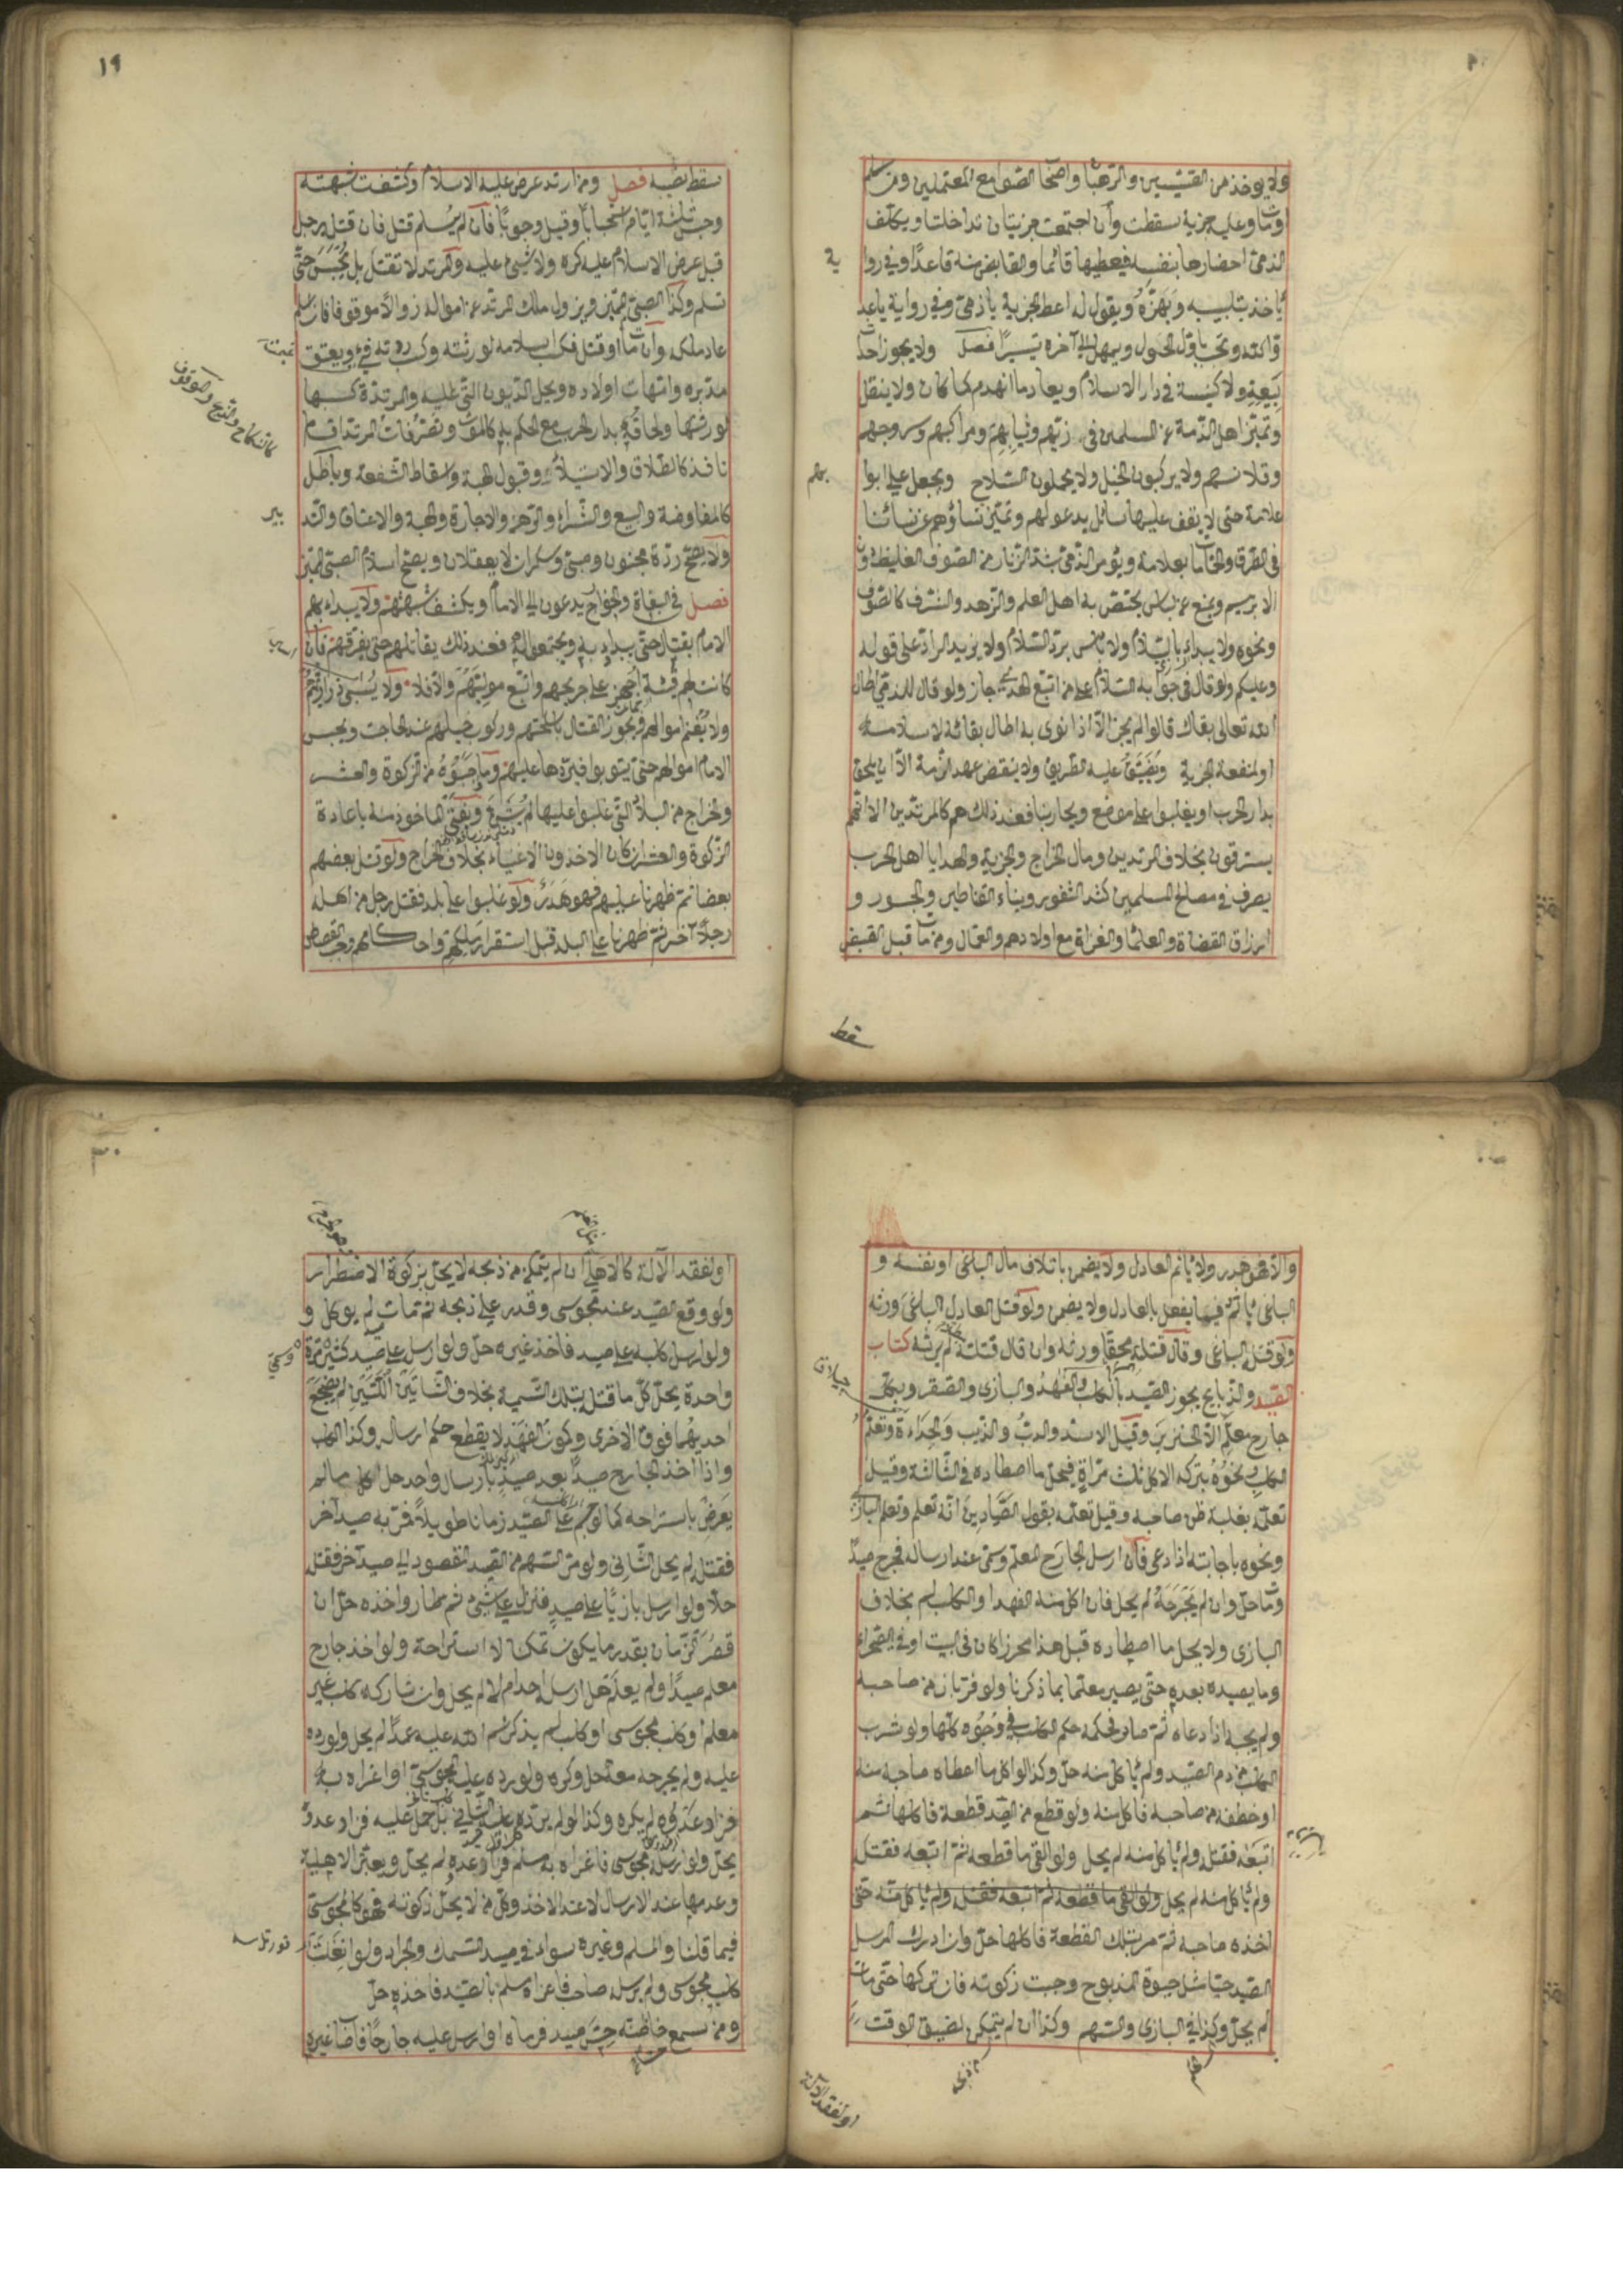 ولا يوخذ من القسيسين والرهبان واصحاب الصوامع المعتملين ومن اسلم
او مات وعليه جزية سقطت وان اجتمعت جزيتان تداخلتا ويكلف
الذمى احضارها بنفسه فيعطيها قائما والقابض منه قاعدا وفي روا
ية
ياخذ بتلبيبه ويهزه ويقول له اعط الجزية يا ذمى وفي رواية يا عد
و الله وتجب باول الحول ويمهل الى آخره تيسيرا فصل ولا يجوز احداث
بيعة ولا كنيسة في دار الاسلام ويعاد ما انهدم كما كان ولا ينقل
وتميز اهل الذمة عن المسلمين في زيهم وثيابهم ومراكبهم وسروجهم
وقلانسهم ولا يركبون الخيل ولا يحملون السلاح ويجعل على ابوا
بهم
علامة حتى لا يقف عليها سائل يدعو لهم وتميز نساؤهم عن نسائنا
في الطرق والحمامات بعلامة ويؤمر الذمى بشد الزنار من الصوف الغليظ دون
الابريسم ويمنع عن لباس يختص به اهل العلم والزهد والشرف كالصوف
ونحوه ولا يبداء بالسلام ولا باس برد السلام ولا يزيد الراد على قوله
وعليكم ولو قال في جوابه السلام على من اتبع الهدى جاز ولو قال للذمى اطال
الله تعالى بقاك قالوا لم يجز الا اذا نوى به اطال بقائه لاسلامه
او لمنفعة الجزية ويضيق عليه الطريق ولا ينقض عهد الذمة الا ان يلحق
بدار الحرب او يغلبوا على موضع ويحاربنا فعند ذلك هم كالمرتدين الا انهم
يسترقون بخلاف المرتدين ومال الخراج والجزية والهدايا اهل الحرب
يصرف في مصالح المسلمين كسد الثغور وبناء القناطير والجسور و
ارزاق القضاة والعلماء والغزاة مع اولادهم والعمال ومن مات قبل القبض
سقط
١٩
سقط نصيبه فصل ومن ارتد عرض عليه الاسلام وكشفت شبهته
وحبس ثلثة ايام استحبابا وقيل وجوبا فان لم يسلم قتل فان قتله رجل
قبل عرض الاسلام عليه كره ولا شيء عليه والمرتد لا تقتل بل تحبس حتى
تسلم وكذا الصبى المميز ويزول ملك المرتد عن امواله زوالا موقوفا فان اسلم
عاد ملكه وان مات او قتل فكسب اسلامه لورثته وكسب ردته فيء ويعتق
مدبره وامهات اولاده ويحل الديون التي عليه والمرتدة كسبها
لورثتها ولحاقه بدار الحرب مع الحكم به كالموت وتصرفات المرتد اقسام
نافذ كالطلاق والاستيلاد وقبول الهبة واسقاط الشفعة وباطل
كالنكاح والذبح والموقوف
كالمفاوضة والبيع والشراء والرهن والاجارة والهبة والاعتاق والتد
بير
ولا يصح ردة مجنون وصبى وسكران لا يعقلان ويصح اسلام الصبى المميز
فصل في البغاة والخوارج يدعون الى الامام ويكشف شبهتهم ولا يبداء بهم
الامام بقتال حتى يبداء به ويجتمعوا له فعند ذلك يقاتلهم حتى يفرقهم فان
كانت لهم فئة اجهز على جريحهم واتبع موليهم والا فلا ولا يسبى ذراريهم
ولا يغنم اموالهم ويجوز القتال باسلحتهم وركوب خيلهم عند الحاجت ويحبس
الامام اموالهم حتى يتوبوا فيردها عليهم وما جبوه من الزكوة والعشر
والخراج من البلاد التي غلبوا عليها لم يشرع ويفتى الماخوذ منه باعادة
الزكوة والعشر ان كان الاخذون الاغنياء بخلاف الخراج ولو قتل بعضهم
بعضا ثم ظهرنا عليهم فهو هدر ولو غلبوا على بلد فقتل رجل من اهله
رجلا آخر ثم ظهرنا على البلد قبل استقرار ملكهم واحكامهم وجب القصاص
والا فهو هدر ولا ياثم العادل ولا يضمن باتلاف مال الباغى او نفسه و
الباغى ياثم فيما يفعل بالعادل ولا يضمن ولو قتل العادل الباغى ورثه
ولو قتل الباغى وقال قتلته محقا ورثه وان قال قتلته لم يرثه كتاب
الصيد والذبايح يجوز الصيد بالكلب والفهد والبازى والصقر وبكل
جارح معلم الا الخنزير وقيل الاسد والدب والذيب والحداءة وتعلم
الكلب ونحوه بتركه الاكل ثلث مرات فيحل ما اصطاده في الثالثة وقيل
تعلمه بغلبة ظن صاحبه وقيل تعلمه بقول الصيادين انه تعلم وتعلم البازى
ونحوه باجابته اذا دعى فان ارسل الجارح المعلم وسمى عند ارساله فجرح صيدا
ومات حل وان لم يجرحه لم يحل فان اكل منه الفهد او الكلب لم بخلاف
البازى ولا يحل ما اصطاده قبل هذا محرزا كان في البيت او في الصحراء
وما يصيده بعده حتى يصير معلما بما ذكرنا ولو فر باز من صاحبه
ولم يجبه اذا دعاه ثم صاد فحكمه حكم الكلب في وجوه كلها ولو شرب
الكلب من دم الصيد ولم ياكل منه حل وكذا لو اكل ما اعطاه صاحبه منه
او خطفه من صاحبه فاكل منه ولو قطع من الصيد قطعة فاكلها ثم
اتبعه فقتله ولم ياكل منه لم يحل ولو القى ما قطعه ثم اتبعه فقتله
ولم ياكل منه لم يحل ولو القى ما قطعه ثم اتبعه فقتله ولم ياكل منه حتى
اخذه صاحبه ثم مر بتلك القطعة فاكلها حل وان ادرك المرسل
الصيد حيا مثل حيوة المذبوح وجبت زكوته فان تركها حتى مات
لم يحل وكذا في البازى والسهم وكذا ان لم يتمكن لضيق الوقت
او لفقد الآلة
٢٠
او لفقد الآلة كالاهلى ان لم يتمكن من ذبحه لا يحل بزكوة الاضطرار
ولو وقع الصيد عند مجوسى وقدر على ذبحه ثم مات لم يوكل و
ولو ارسل كلبه على صيد فاخذ غيره حل ولو ارسل على صيد كثيرة مرة
واحدة يحل كل ما قتل بتلك التسمية بخلاف الشاتين الكتين لم يضجع
احديهما فوق الاخرى وكمون الفهد لا يقطع حكم ارساله وكذا الكلب
واذا اخذ الجارح صيدا بعد صيد بارسال واحد حل الكل ما لم
يعرض باستراحه كما لو جثم على الصيد زمانا طويلا فمر به صيد آخر
فقتله لم يحل الثاني ولو مر السهم من الصيد المقصود الى صيد آخر فقتله
حلا ولو ارسل بازيا على صيد فنزل على شيء ثم طار واخذه حل ان
قصر الزمان بقدر ما يكون تمكنا لا استراحة ولو اخذ جارح
معلم صيدا ولم يعلم هل ارسله احدام لا لم يحل وان شاركه كلب غير
معلم او كلب مجوسى او كلب لم يذكر اسم الله عليه عمدا لم يحل ولورده
عليه ولم يجرحه معه حل وكره ولو رده عليه المجوسى او اغراه به
فزاد عدوه لم يكره وكذا لو لم يرده عليه الثاني بل حمل عليه فزاد عدوه
يحل ولو ارسله مجوسى فاغراه به مسلم فزاد عدوه لم يحل ويعتبر الاهلية
وعدمها عند الارسال لا عند الاخذ وكل من لا يحل زكوته فهو كالمجوسى
فيما قلنا والمسلم وغيره سواء في صيد السمك والجراد ولو انفلت
كلب مجوسى ولم يرسله صاحب فاغراه مسلم بالصيد فاخذه حل
ومن سمع خاطئه حس صيد فرماه او ارسل عليه جارحا فاصاب غيره